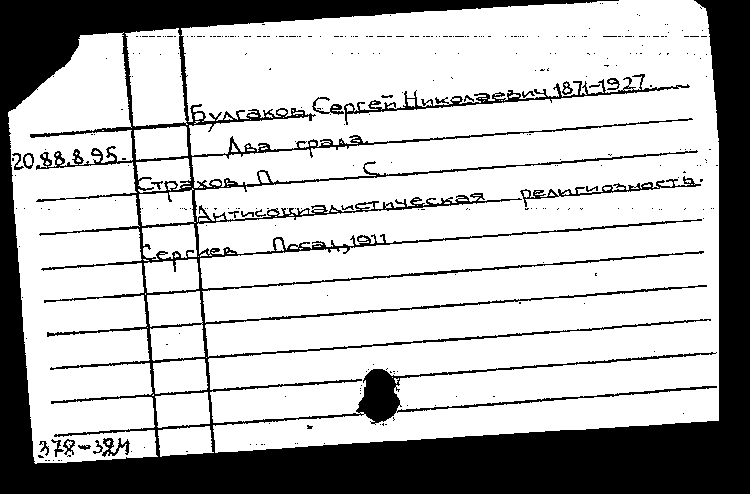 Булгаков, Сергей Николаевич, 1871-1927.
Два града.
20.88.8.95.
Страхов, П. С.
Антисоциалистическая религиозность.
Сергиев Посад, 1911.
378-384